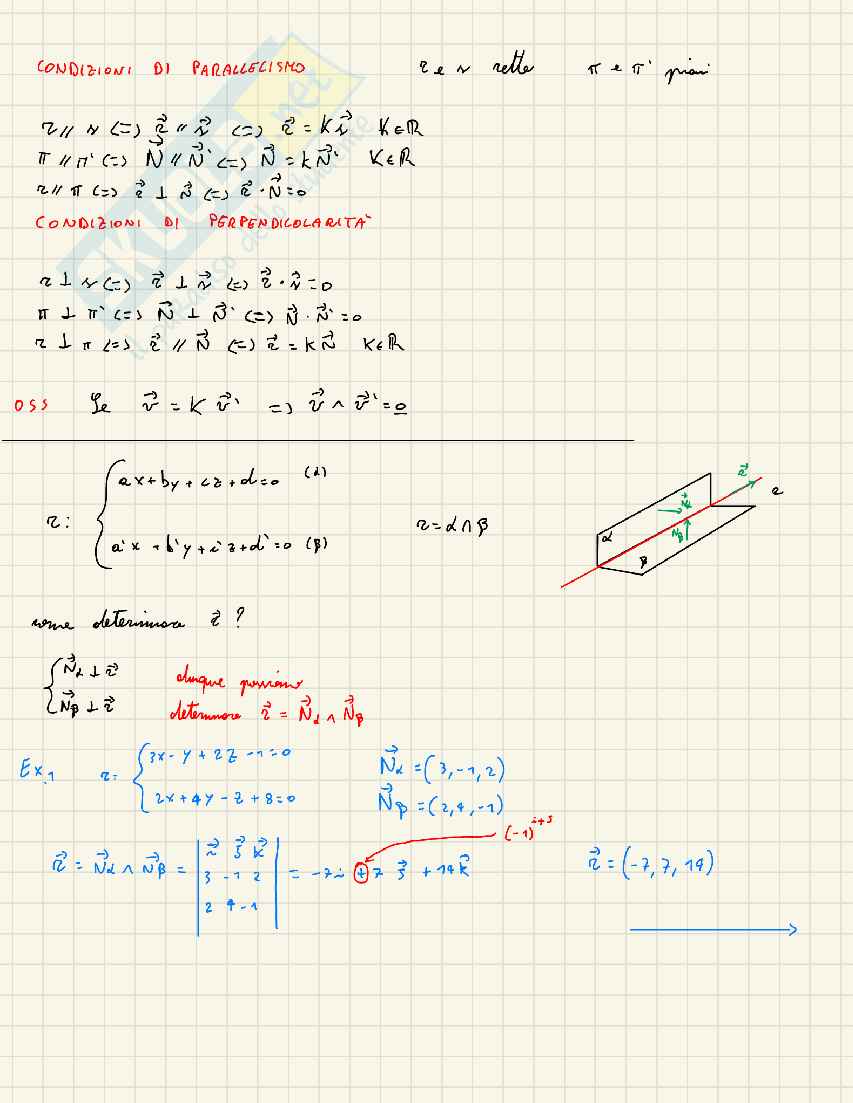 CONDIZIONI DI PARALLELISMO r e s rette π e π' piani
r // s <=> r⃗ // s⃗ <=> r⃗ = K s⃗ K∈ℝ
π // π' <=> N⃗ // N⃗' <=> N⃗ = K N⃗' K∈ℝ
r // π <=> r⃗ ⊥ N⃗ <=> r⃗ · N⃗ = 0
CONDIZIONI DI PERPENDICOLARITÀ
r ⊥ s <=> r⃗ ⊥ s⃗ <=> r⃗ · s⃗ = 0
π ⊥ π' <=> N⃗ ⊥ N⃗' <=> N⃗ · N⃗' = 0
r ⊥ π <=> r⃗ // N⃗ <=> r⃗ = K N⃗ K∈ℝ
SKUOLA.net
il paradiso dello studente
OSS Se v⃗ = K v⃗' => v⃗ ∧ v⃗' = 0
r: { ax + by + cz + d = 0 (α)
a'x + b'y + c'z + d' = 0 (β)
r = α ∩ β
r⃗
r
N⃗α
Nβ
α
β
come determinare r⃗ ?
{ N⃗α ⊥ r⃗
N⃗β ⊥ r⃗
dunque possiamo
determinare r⃗ = N⃗α ∧ N⃗β
Ex.1 r = { 3x - y + 2z - 1 = 0
2x + 4y - z + 8 = 0
N⃗α = (3, -1, 2)
N⃗β = (2, 4, -1)
(-1)^i+j
r⃗ = N⃗α ∧ N⃗β = | i⃗ j⃗ k⃗
3 -1 2
2 4 -1 | = -7i + 7 j⃗ + 14 k⃗
r⃗ = (-7, 7, 14)